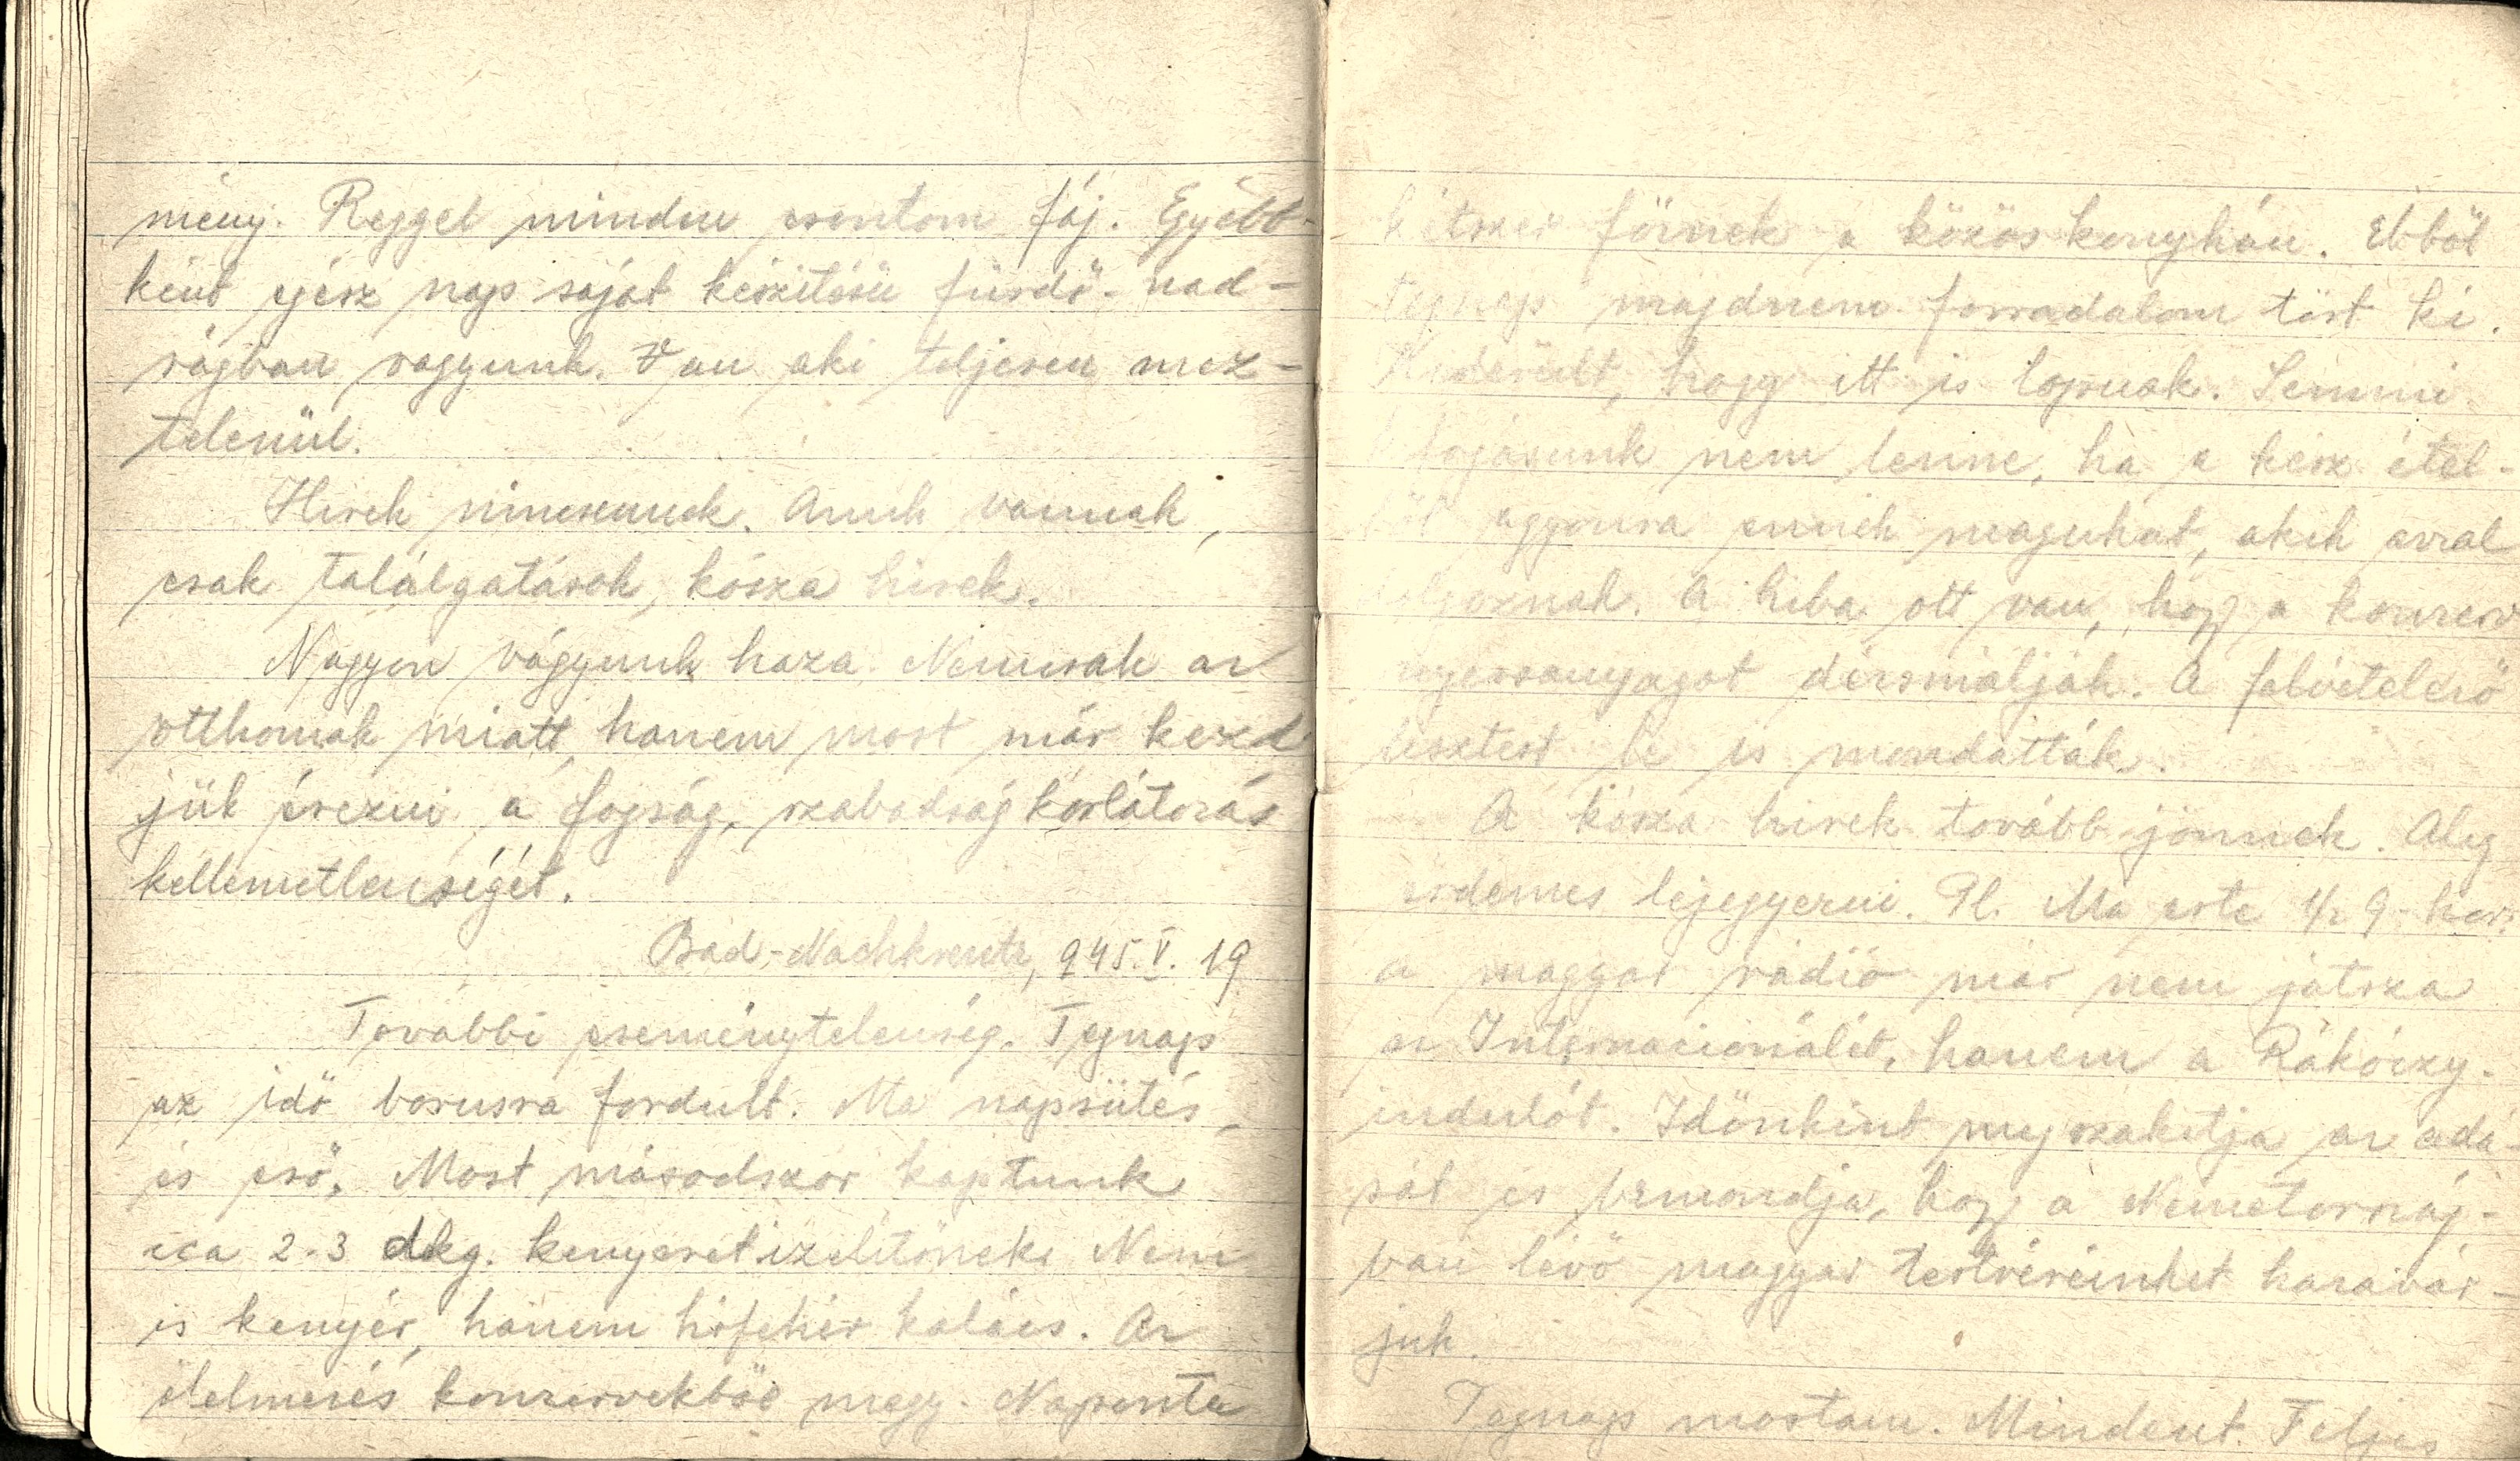 mény. Reggel minden csontom fáj. Egyébb-
ként egész nap saját készitésü fürdő-nad-
rágban vagyunk. Van aki teljesen mez-
telenül.
Hirek nincsenek. Amik vannak,
csak találgatások, kósza hirek.
Nagyon vágyunk haza. Nemcsak az
otthonok miatt, hanem most már kezd
jük érezni a fogság, szabadság korlátozás
kellemetlenségét.
Bad-Nachkreutz, 945. V. 19
További eseménytelenség. Tegnap
az idő borusra fordult. Ma napsütés,
és eső. Most másodszor kaptunk
cca 2-3 dkg. kenyeret izelitőnek. Nem
is kenyér, hanem hófehér kalács. Az
élelmezés konzervekből megy. Naponta
kétszer főznek a közös konyhán. Ebből
tegnap majdnem forradalom tört ki.
Kiderült, hogy itt is lopnak. Semmi
kifogásunk nem lenne, ha a kész étel-
ből agyonra ennék magukat, akik avval
dolgoznak. A hiba ott van, hogy a konzerv
nyersanyagot dézsmálják. A felvételező
tisztest le is mondatták.
A kósza hirek tovább jönnek. Alig
érdemes lejegyezni. Pl. Ma este 1/2 9-kor
a magyar rádió már nem játsza
az Internacionálét, hanem a Rákóczy-
indulót. Időnkint megszakitja az adá
sát és bemondja, hogy a Németország-
ban lévő magyar testvéreinket hazavár-
juk.
Tegnap mostam. Mindent. Teljes